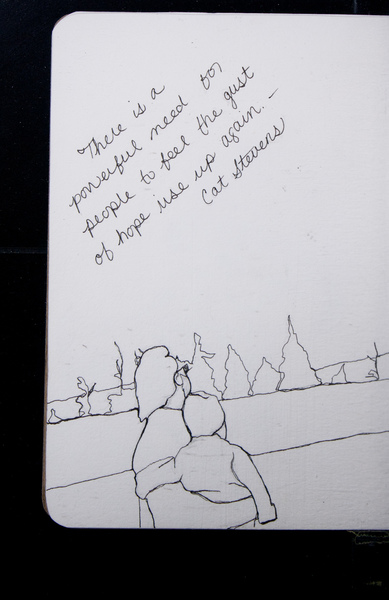 There is a
powerful need for
people to feel the gust
of hope rise up again. –
Cat Stevens